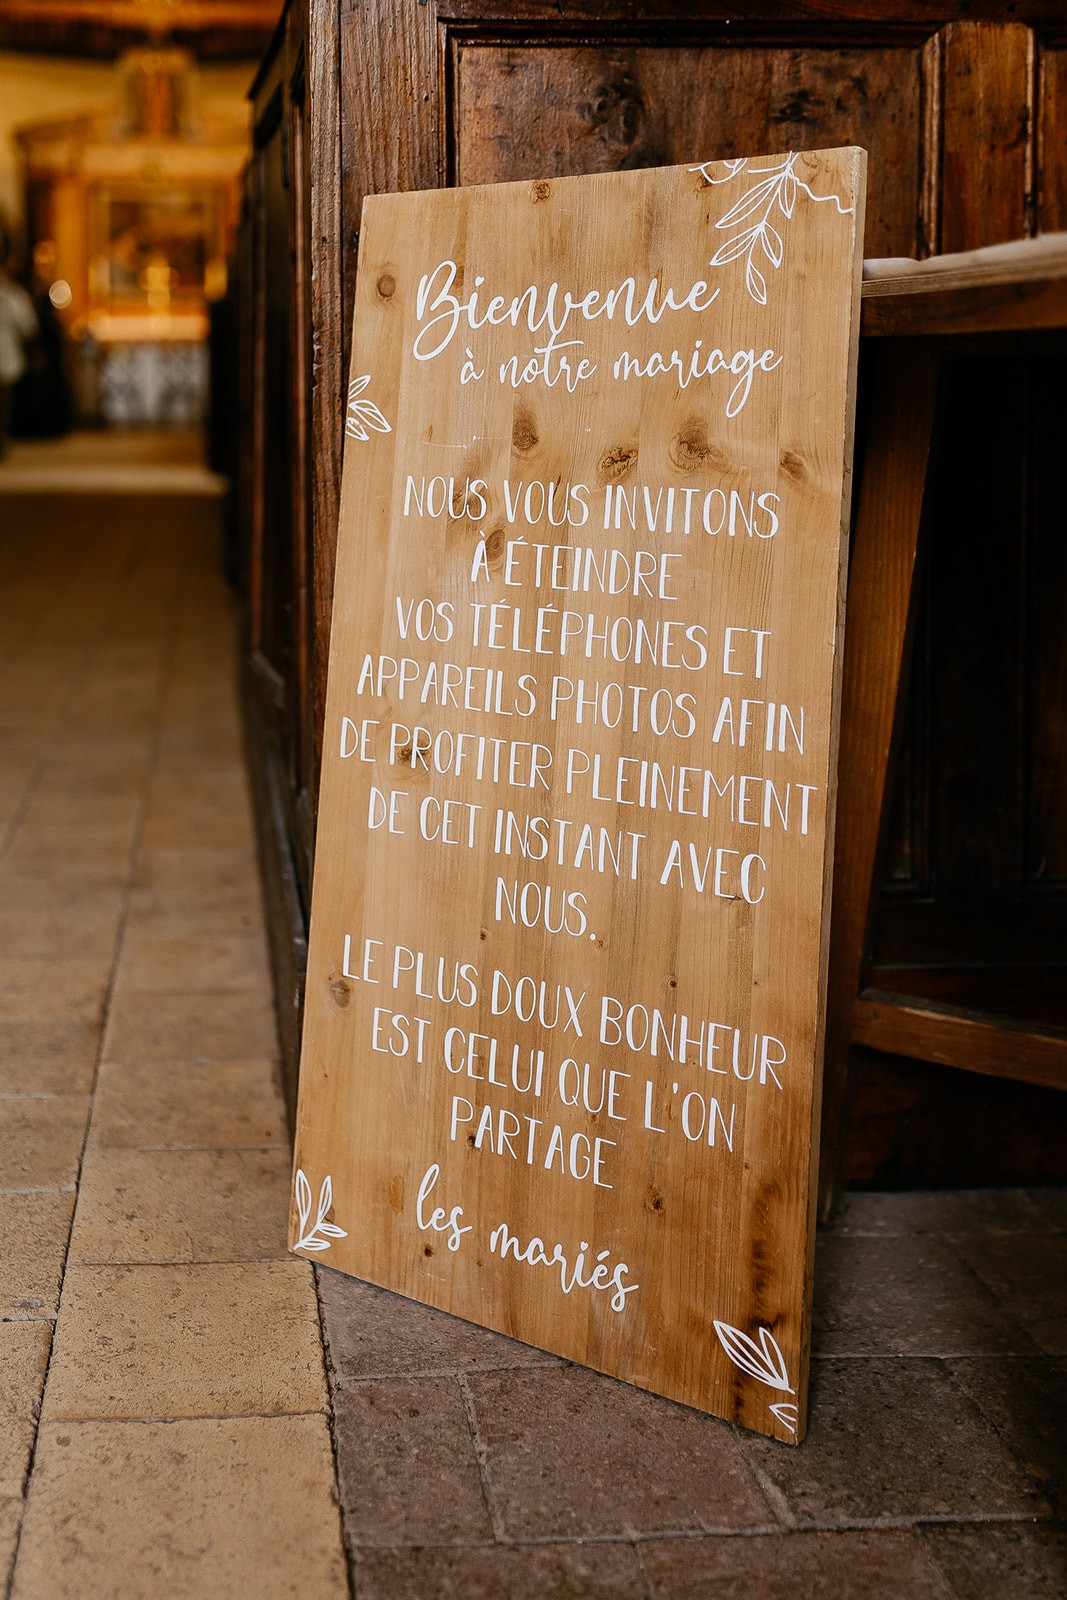 Bienvenue
à notre mariage
NOUS VOUS INVITONS
À ÉTEINDRE
VOS TÉLÉPHONES ET
APPAREILS PHOTOS AFIN
DE PROFITER PLEINEMENT
DE CET INSTANT AVEC
NOUS.
LE PLUS DOUX BONHEUR
EST CELUI QUE L'ON
PARTAGE
les mariés